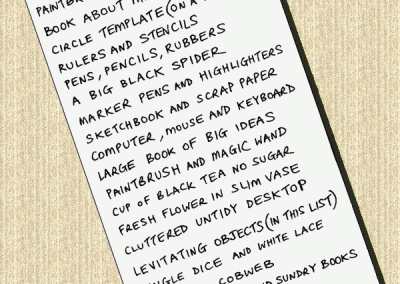 BOOK ABOUT
CIRCLE TEMPLATE (ON A
RULERS AND STENCILS
PENS, PENCILS, RUBBERS
A BIG BLACK SPIDER
MARKER PENS AND HIGHLIGHTERS
SKETCHBOOK AND SCRAP PAPER
COMPUTER, MOUSE AND KEYBOARD
LARGE BOOK OF BIG IDEAS
PAINTBRUSH AND MAGIC WAND
CUP OF BLACK TEA NO SUGAR
FRESH FLOWER IN SLIM VASE
CLUTTERED UNTIDY DESKTOP
LEVITATING OBJECTS (IN THIS LIST)
DICE AND WHITE LACE
COBWEB
SUNDRY BOOKS